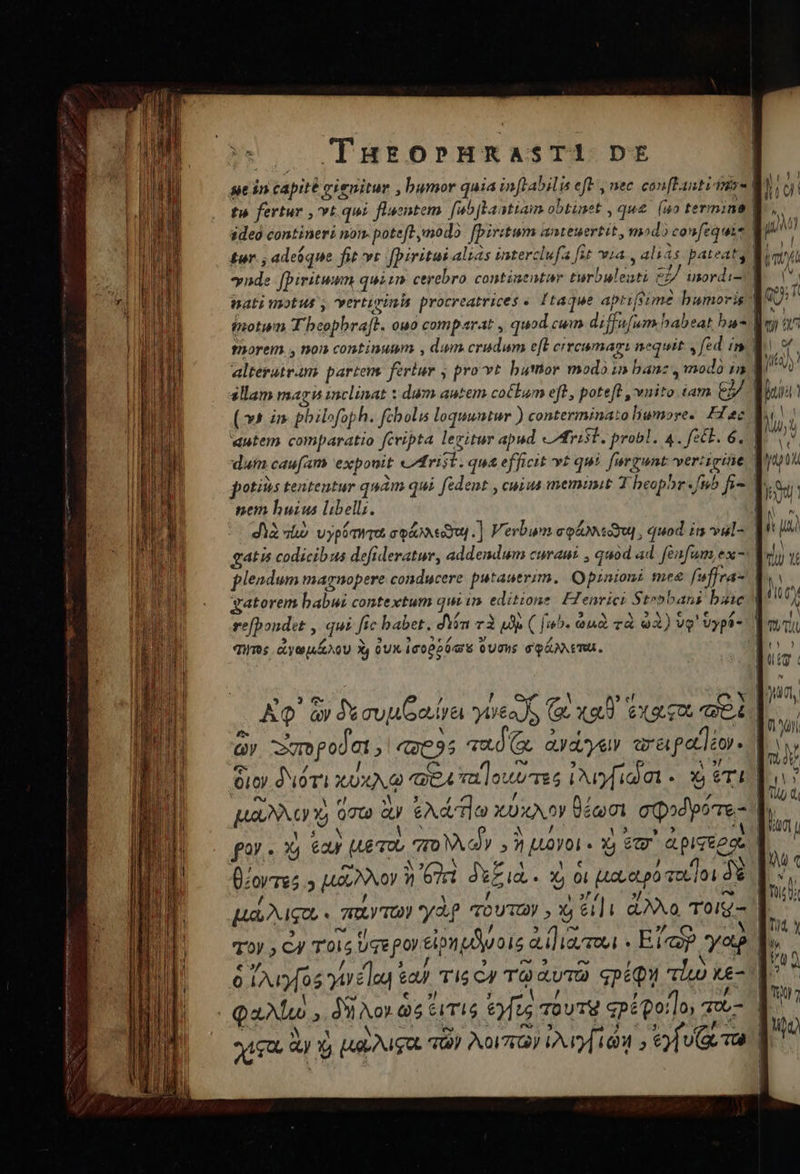 THEOPHRASTI DE
ue in capite gignitur, humor quia instabilis est, nec constanti mo-
tu fertur, vt qui fluentem substantiam obtinet, quæ suo termino
ideo contineri non potest, modò spiritum anteuertit, modò consequi-
tur; adeóque fit vt spiritui aliàs interclusa sit via, aliàs pateat,
vnde spirituum qui in cerebro continentur turbulenti &/ inordi-
nati motus, vertiginis procreatrices. Itaque aptissimè humoris
motum Theophrast. ouo comparat, quod cum diffusum habeat hu-
morem, non continuum, dum crudum est circumagi nequit, sed in
alterutram partem fertur; pro vt humor modò in hanc, modò in
illam magis inclinat: dum autem coctum est, potest, vnito iam &/
(vt in philosoph. scholis loquuntur) conterminato humore. Hæc
autem comparatio scripta legitur apud Arist. probl. 4. sect. 6.
dum causam exponit Arist. quæ efficit vt qui surgunt vertigine
potiùs tententur quàm qui sedent, cuius meminit Theophr. sub fi-
nem huius libelli.
διὰ τὴν ὑγρότητα σφάλλεσθαι.] Verbum σφάλλεσθαι, quod in vul-
gatis codicibus desideratur, addendum curaui, quòd ad sensum ex-
plendum magnopere conducere putauerim. Opinioni meæ suffra-
gatorem habui contextum qui in editione Henrici Stephani hunc
respondet, qui sic habet. διότι τὰ μὲν (sub. ὠμὰ τὰ ὠὰ) ὑφ' ὑγρό-
τητος ἀγωμάλου καὶ οὐκ ἰσορρόπου οὔσης σφάλλεται.
Αφ' ὧν δὲ συμβαίνει γίνεσθαι τὰ καθ' ἕκαστα περὶ
ὧν ἀποροῦσι, πρὸς ταῦτα ἀνάγειν πειρατέον.
οἷον διότι κύκλῳ περιπατοῦντες ἰλιγγιῶσι. καὶ ἔτι
μᾶλλον καὶ ὅσῳ ἂν ἐλάττω κύκλον θέωσι σφοδρότε-
ρον. καὶ ἐὰν μετὰ πολλῶν, ἢ μόνοι. καὶ ἐπ' ἀριστερὰ
θέοντες, μᾶλλον ἢ ἐπὶ δεξιά. καὶ οἱ μακρότατοι δὲ
μάλιστα. πάντων γὰρ τούτων, καὶ εἴ τι ἄλλο τοιοῦ-
τον, ἐν τοῖς ὕστερον εἰρημένοις αἰτιᾶται. Εἴπερ γὰρ
ὁ ἴλιγγος γίνεται ἐάν τις ἐν τῷ αὐτῷ στρέφῃ τὴν κε-
φαλὴν, δῆλον ὡς εἴ τις ἐγγὺς τούτου στρέφοιτο, τά-
χιστα ἂν καὶ μάλιστα τῶν λοιπῶν ἰλιγγιῴη, ἐγγύτα τῷ